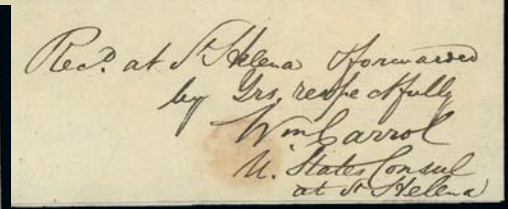 Recd. at St Helena & forwarded
by Yrs. respectfully
Wm Carrol
U. States Consul
at St Helena